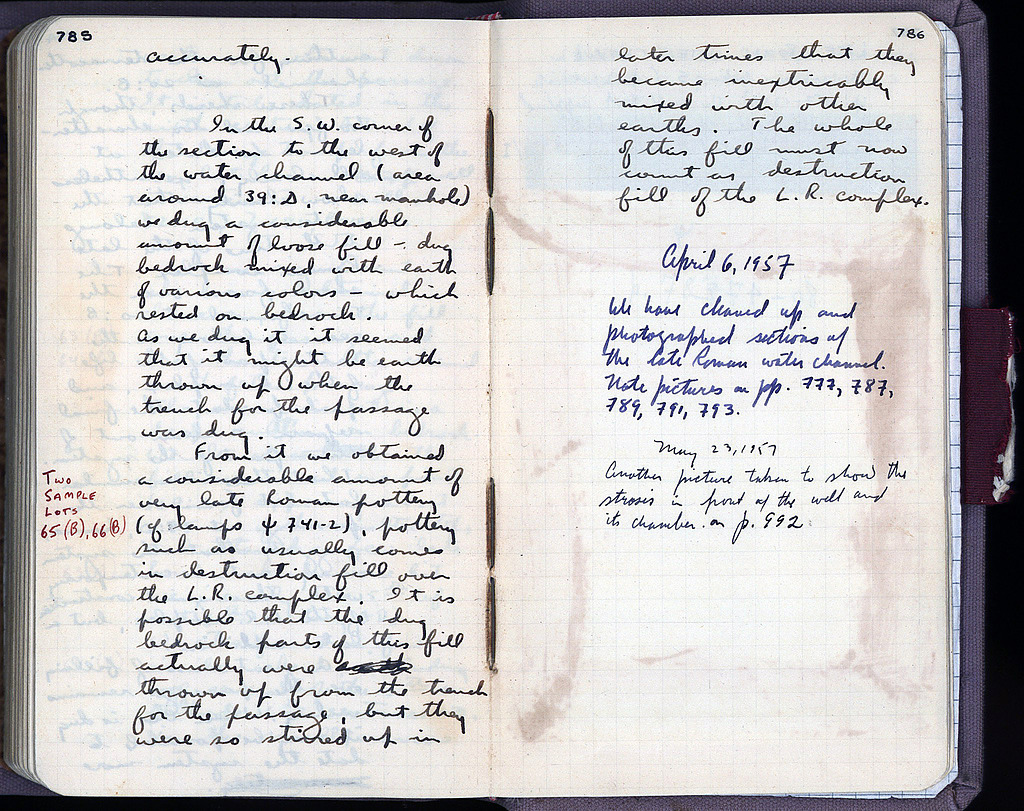 785
accurately.
In the S.W. corner of
the section to the west of
the water channel (area
around 39:Δ, near manhole)
we dug a considerable
amount of loose fill - dug
bedrock mixed with earth
of various colors - which
rested on bedrock.
As we dug it it seemed
that it might be earth
thrown up when the
trench for the passage
was dug.
From it we obtained
a considerable amount of
very late Roman pottery
(cf. lamps ψ 741-2), pottery
such as usually comes
in destruction fill over
the L.R. complex. It is
possible that the dug
bedrock parts of this fill
actually were
thrown up from the trench
for the passage, but they
were so stirred up in
TWO
SAMPLE
LOTS
65(B), 66(B)
786
later times that they
became inextricably
mixed with other
earths. The whole
of this fill must now
count as destruction
fill of the L.R. complex.
April 6, 1957
We have cleaned up and
photographed sections of
the late Roman water channel.
Note pictures on pp. 777, 787,
789, 791, 793.
May 23, 1957
Another picture taken to show the
stroses in front of the well and
its chamber on p. 992.